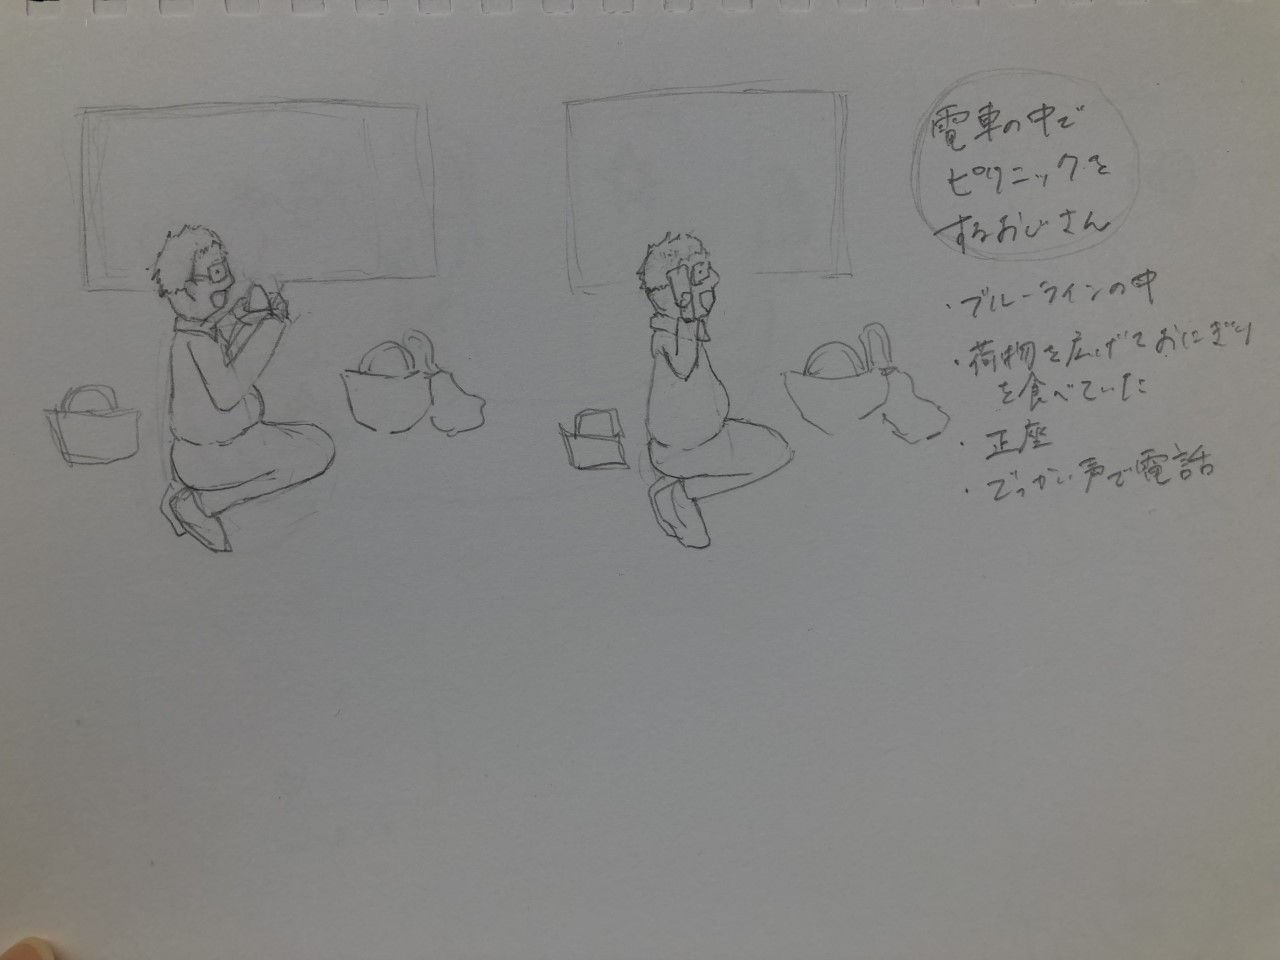 電車の中で
ピクニックを
するおじさん
・ブルーラインの中
・荷物を広げておにぎり
を食べていた
・正座
・でっかい声で電話